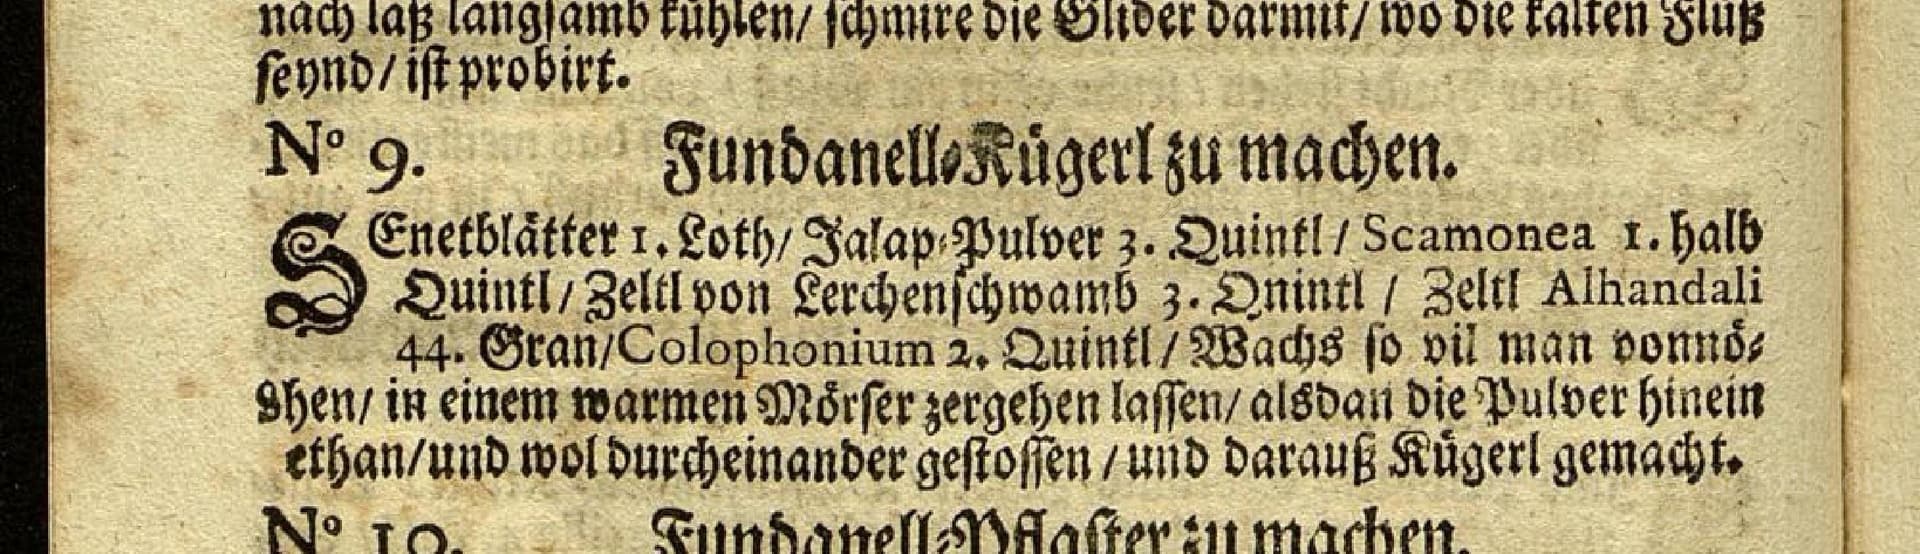 nach laß langsamb kühlen/ schmire die Glider darmit/ wo die kalten Flüß
seynd/ ist probirt.
Nº 9. Fundanell-Kügerl zu machen.
SEnetblätter 1. Loth/ Jalap-Pulver 3. Quintl/ Scamonea 1. halb
Quintl/ Zeltl von Lerchenschwamb 3. Qnintl / Zeltl Alhandali
44. Gran/ Colophonium 2. Quintl/ Wachs so vil man vonnö-
shen/ in einem warmen Mörser zergehen lassen/ alsdan die Pulver hinein
ethan/ und wol durcheinander gestossen / und darauß Kügerl gemacht.
Nº 10. Fundanell-Pflaster zu machen.